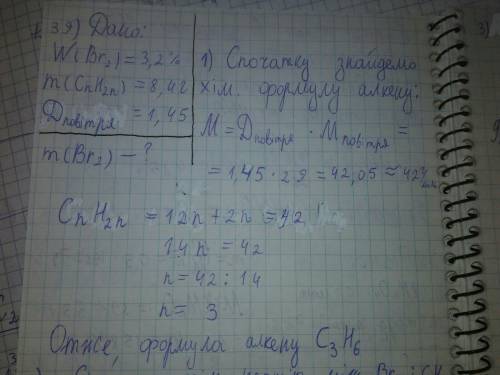 39) Дано:
W(Br₂) = 3,2%
m(CnH2n) = 8,4г
Dповітря = 1,45
m(Br₂) – ?
1) Спочатку знайдемо
хім. формулу алкену:
M = Dповітря · Mповітря =
= 1,45 · 29 = 42,05 ≈ 42 г/моль
CnH2n = 12n + 2n = 42
14n = 42
n = 42 : 14
n = 3
Отже, формула алкену C₃H₆